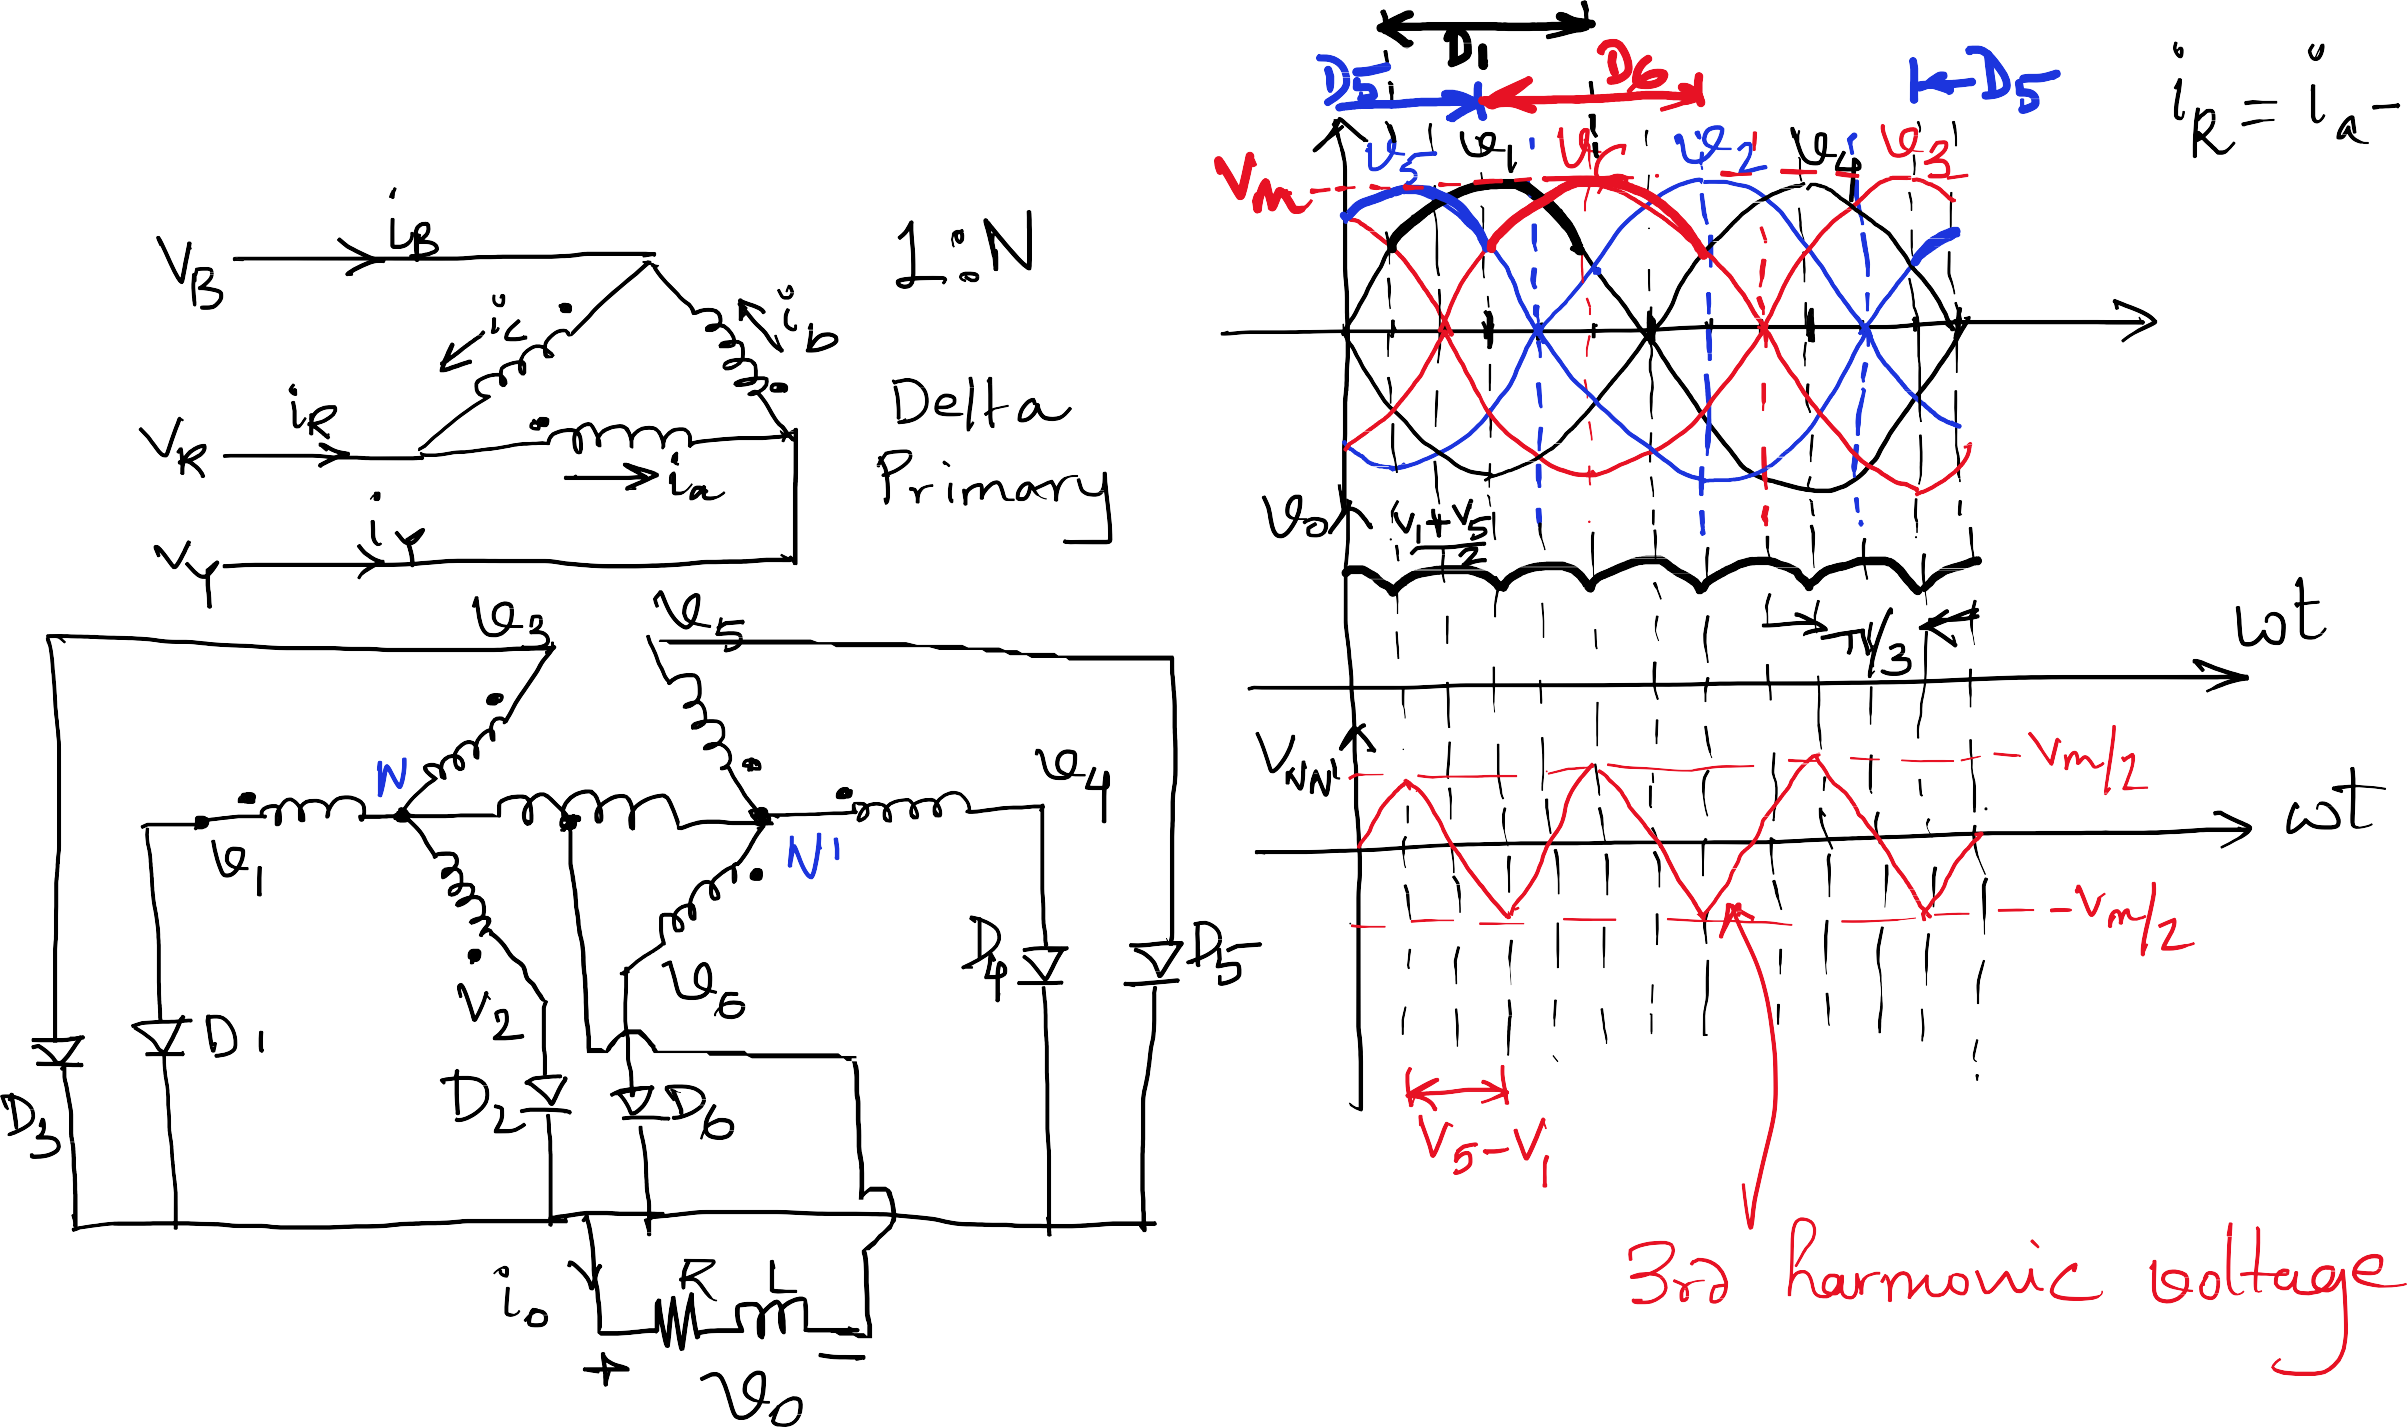 V_B
i_B
1:N
i_c
i_b
V_R
i_R
i_a
Delta
Primary
V_Y
i_Y
v_3
v_5
N
N'
v_1
v_4
V_2
v_6
D_3
D1
D_2
D_6
D_4
D_5
i_o
R
L
+
−
v_o
D_1
D_5
D_6
D_5
i_R = i_a -
V_m
v_5
v_1
v_2
v_4
v_3
v_o
V_1+V_5/2
π/3
ωt
V_NN'
V_m/2
ωt
-V_m/2
V_5-V_1
3rd harmonic voltage